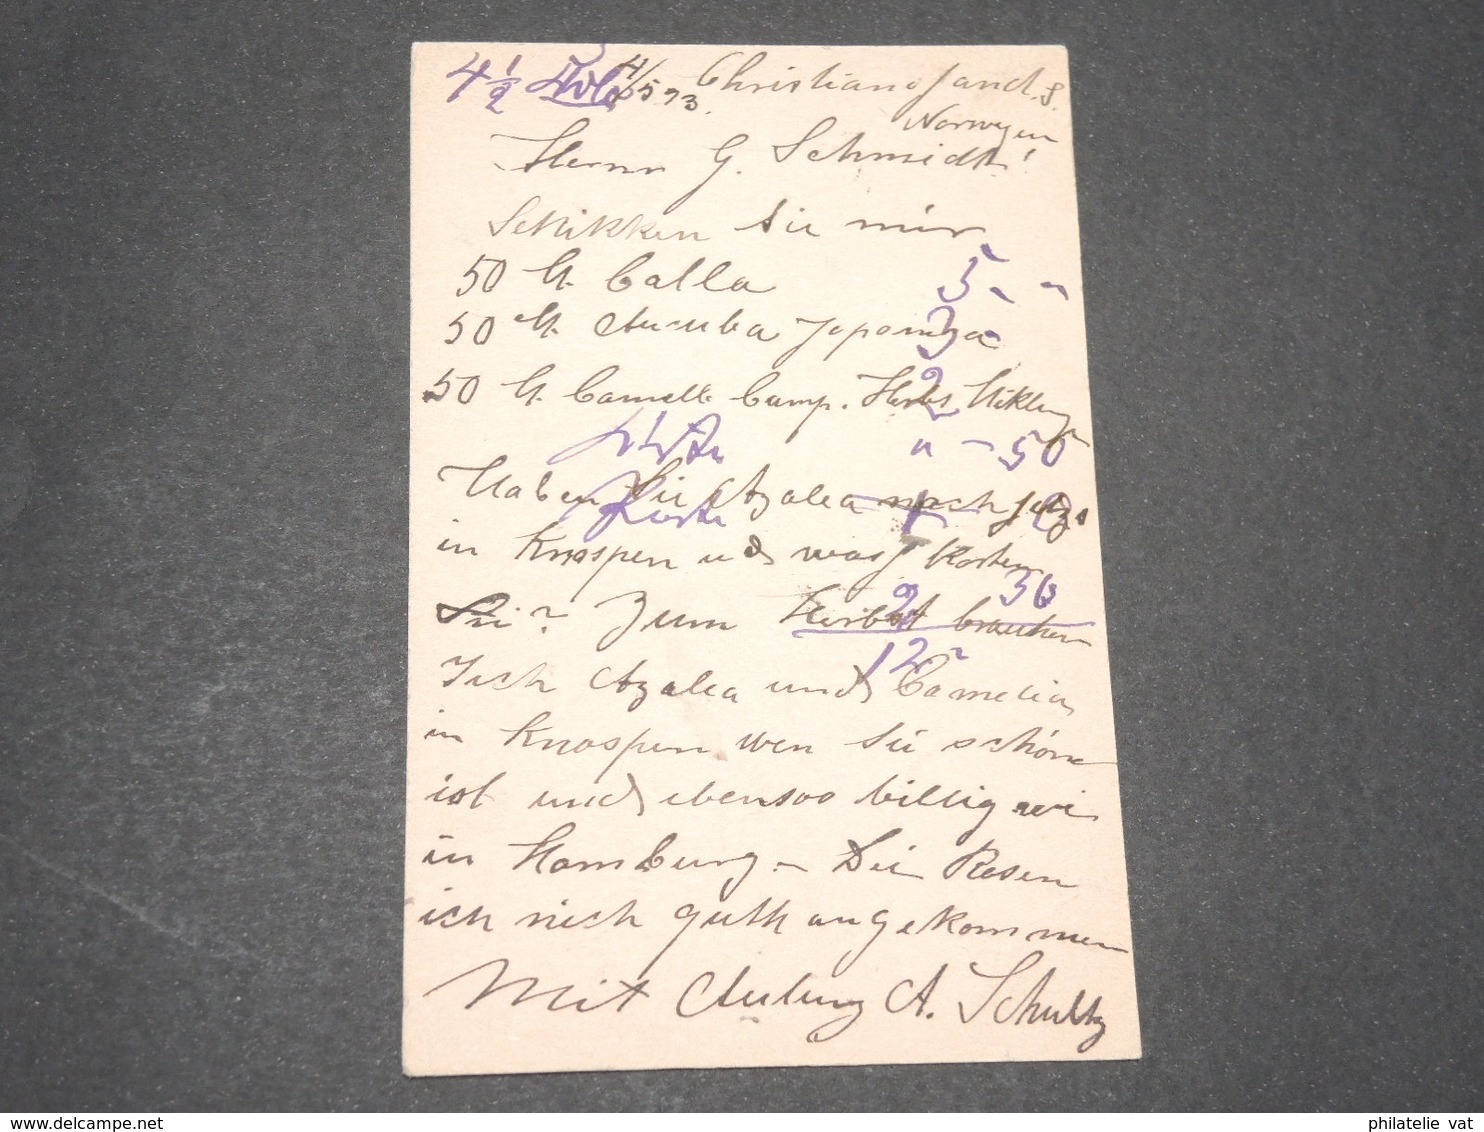 4 1/2 Kilo 4/5 93. Christiansand. S.
Norwegen
Herrn G. Schmidt!
Schikken Sie mir
50 St. Calla 5. -
50 St. Aucuba Japoniga 3 -
50 St. Camell. Camp. 2
Kiste " - 50
Haben Sie Azalea noch jetzt
Porto
in Knospen und was kosten
30
Sie? Zum Herbst brauchen
12 -
Ich Azalea und Camelia
in Knospen wen Sie schöne
ist und ebensoo billig wi
in Hamburg - Die Rosen
ich nich guth angekommen
Mit Achtung A. Schultz
philatelie vat